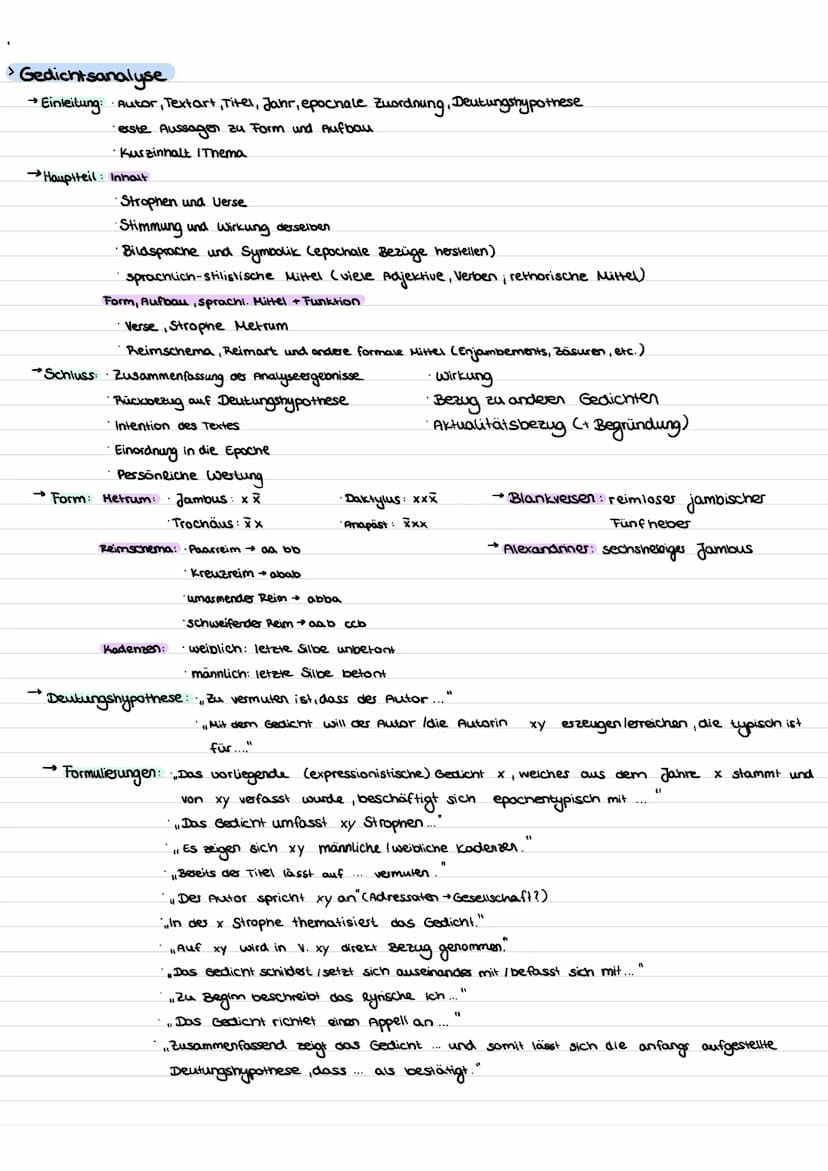 > Gedichtsanalyse
→ Einleitung: · Autor, Textart, Titel, Jahr, epochale Zuordnung, Deutungshypothese
· erste Aussagen zu Form und Aufbau
· Kurzinhalt / Thema
→ Hauptteil: Inhalt
· Strophen und Verse
· Stimmung und Wirkung derselben
· Bildsprache und Symbolik (epochale Bezüge herstellen)
· sprachlich-stilistische Mittel (viele Adjektive, Verben; rethorische Mittel)
Form, Aufbau, sprachl. Mittel + Funktion
· Verse, Strophe Metrum
· Reimschema, Reimart und andere formale Mittel (Enjambements, Zäsuren, etc.)
→ Schluss: · Zusammenfassung der Analyseergebnisse · Wirkung
· Rückbezug auf Deutungshypothese · Bezug zu anderen Gedichten
· Intention des Textes · Aktualitätsbezug (+ Begründung)
· Einordnung in die Epoche
· Persönliche Wertung
→ Form: Metrum: · Jambus: x x̄ · Daktylus: xxx̄ → Blankversen: reimloser jambischer
· Trochäus: x̄ x · Anapäst: x̄xx Fünfheber
Reimschema: · Paarreim → aa bb → Alexandriner: sechshebiges Jambus
· Kreuzreim → abab
· umarmender Reim → abba
· schweifender Reim → aab ccb
Kadenzen: · weiblich: letzte Silbe unbetont
· männlich: letzte Silbe betont
→ Deutungshypothese: · „Zu vermuten ist, dass der Autor ..."
· „Mit dem Gedicht will der Autor / die Autorin xy erzeugen/erreichen, die typisch ist
für ...."
→ Formulierungen: · „Das vorliegende (expressionistische) Gedicht x, welches aus dem Jahre x stammt und
von xy verfasst wurde, beschäftigt sich epochentypisch mit ... "
· „Das Gedicht umfasst xy Strophen ..."
· „Es zeigen sich xy männliche / weibliche Kadenzen."
· „Bereits der Titel lässt auf ... vermuten."
· „Der Autor spricht xy an" (Adressaten → Gesellschaft?)
· „In der x Strophe thematisiert das Gedicht."
· „Auf xy wird in V. xy direkt Bezug genommen."
· „Das Gedicht schildert / setzt sich auseinander mit / befasst sich mit ..."
· „Zu Beginn beschreibt das lyrische Ich ..."
· „Das Gedicht richtet einen Appell an ..."
· „Zusammenfassend zeigt das Gedicht ... und somit lässt sich die anfangs aufgestellte
Deutungshypothese, dass ... als bestätigt."